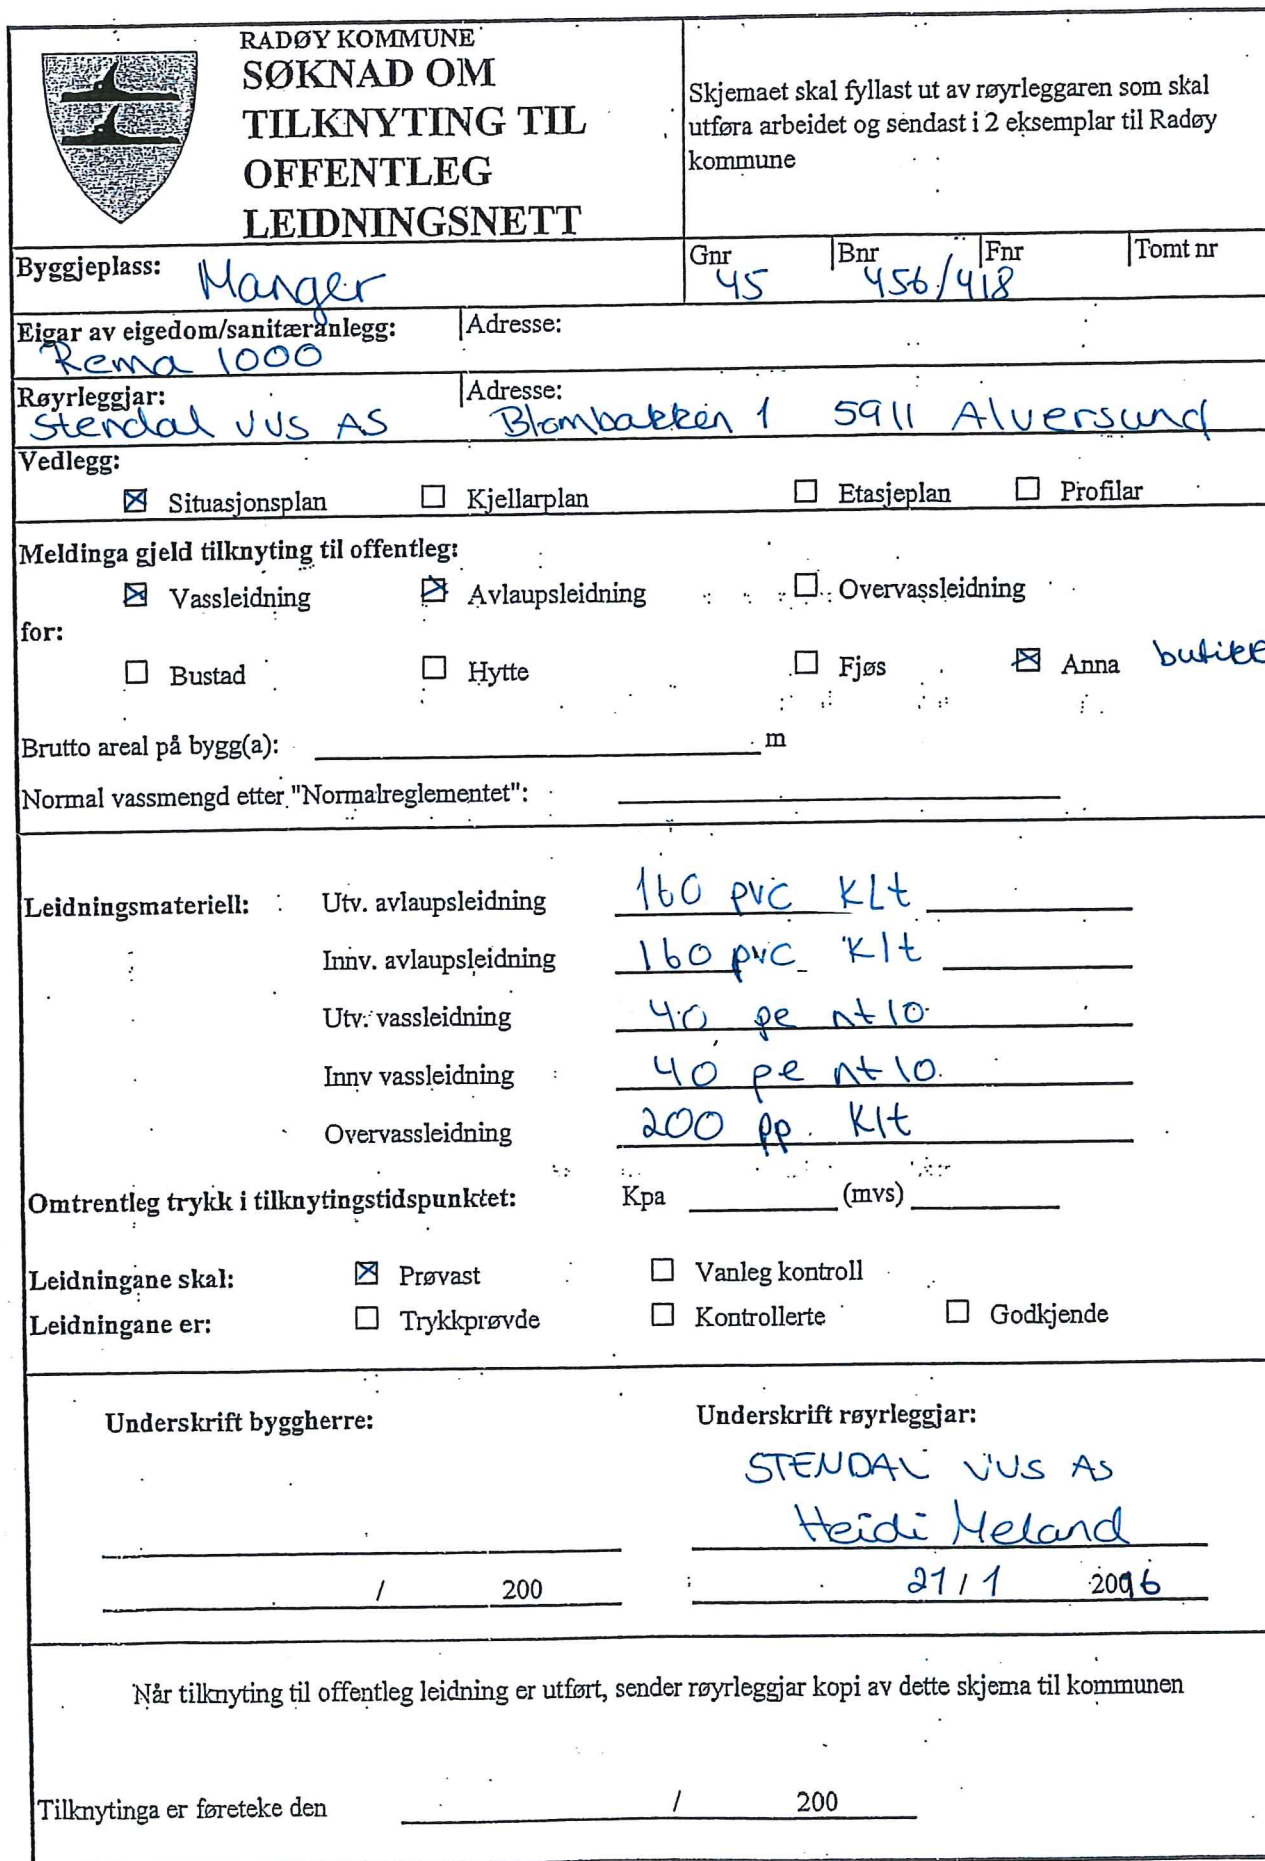 RADØY KOMMUNE
SØKNAD OM
TILKNYTING TIL
OFFENTLEG
LEIDNINGSNETT
Skjemaet skal fyllast ut av røyrleggaren som skal
utføra arbeidet og sendast i 2 eksemplar til Radøy
kommune
Byggjeplass: Manger
Gnr Bnr Fnr Tomt nr
45 456/418
Eigar av eigedom/sanitæranlegg: Adresse:
Rema 1000
Røyrleggjar: Adresse:
Stendal VVS AS Blombakken 1 5911 Alversund
Vedlegg:
☒ Situasjonsplan ☐ Kjellarplan ☐ Etasjeplan ☐ Profilar
Meldinga gjeld tilknyting til offentleg:
☒ Vassleidning ☒ Avlaupsleidning ☐ Overvassleidning
for:
☐ Bustad ☐ Hytte ☐ Fjøs ☒ Anna butikk
Brutto areal på bygg(a): m
Normal vassmengd etter "Normalreglementet":
Leidningsmateriell: Utv. avlaupsleidning 160 pvc KLt
Innv. avlaupsleidning 160 pvc Klt
Utv. vassleidning 40 pe nt10
Innv vassleidning 40 pe nt10
Overvassleidning 200 pp. Klt
Omtrentleg trykk i tilknytingstidspunktet: Kpa (mvs)
Leidningane skal: ☒ Prøvast ☐ Vanleg kontroll
Leidningane er: ☐ Trykkprøvde ☐ Kontrollerte ☐ Godkjende
Underskrift byggherre: Underskrift røyrleggjar:
STENDAL VVS AS
Heidi Meland
/ 200 21 / 1 2016
Når tilknyting til offentleg leidning er utført, sender røyrleggjar kopi av dette skjema til kommunen
Tilknytinga er føreteke den / 200